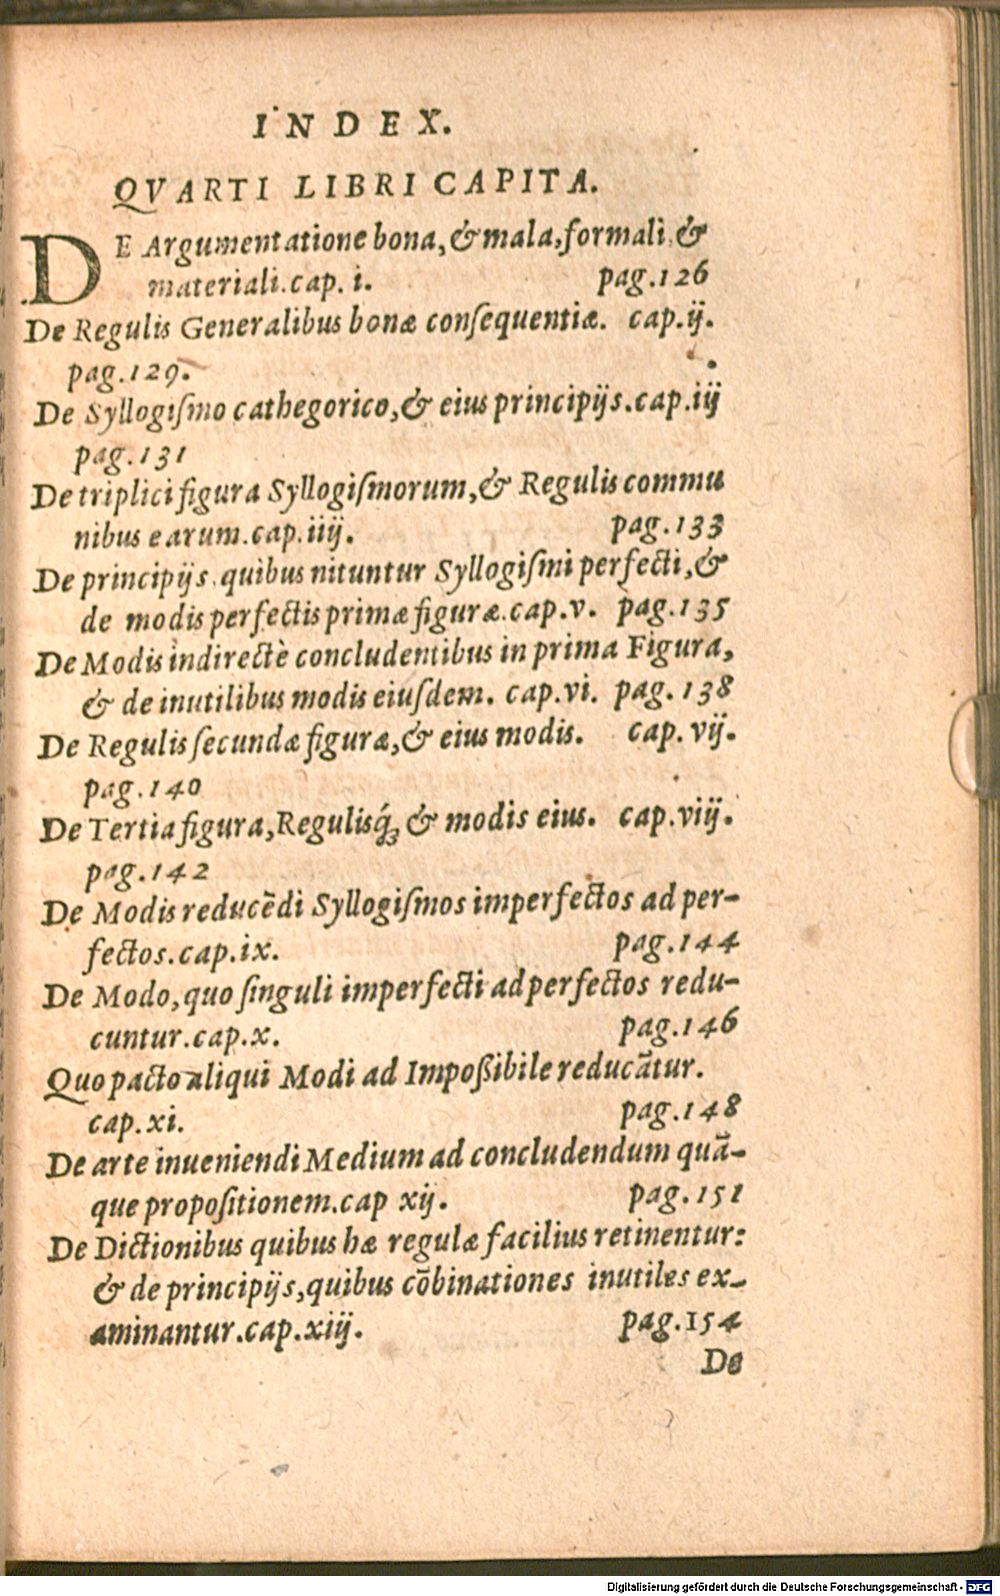 INDEX.
QVARTI LIBRI CAPITA.
DE Argumentatione bona, & mala, formali, &
materiali. cap. i. pag. 126
De Regulis Generalibus bonæ conſequentiæ. cap. ij.
pag. 129.
De Syllogiſmo cathegorico, & eius principijs. cap. iij
pag. 131
De triplici figura Syllogiſmorum, & Regulis commu
nibus earum. cap. iiij. pag. 133
De principijs, quibus nituntur Syllogiſmi perfecti, &
de modis perfectis primæ figuræ. cap. v. pag. 135
De Modis indirectè concludentibus in prima Figura,
& de inutilibus modis eiuſdem. cap. vi. pag. 138
De Regulis ſecundæ figuræ, & eius modis. cap. vij.
pag. 140
De Tertia figura, Regulisq́ꝫ & modis eius. cap. viij.
pag. 142
De Modis reducẽdi Syllogiſmos imperfectos ad per-
fectos. cap. ix. pag. 144
De Modo, quo ſinguli imperfecti ad perfectos redu-
cuntur. cap. x. pag. 146
Quo pacto aliqui Modi ad Impoßibile reducãtur.
cap. xi. pag. 148
De arte inueniendi Medium ad concludendum quã-
que propoſitionem. cap xij. pag. 151
De Dictionibus quibus hæ regulæ facilius retinentur:
& de principijs, quibus cõbinationes inutiles ex-
aminantur. cap. xiij. pag. 154
De
Digitalisierung gefördert durch die Deutsche Forschungsgemeinschaft - DFG